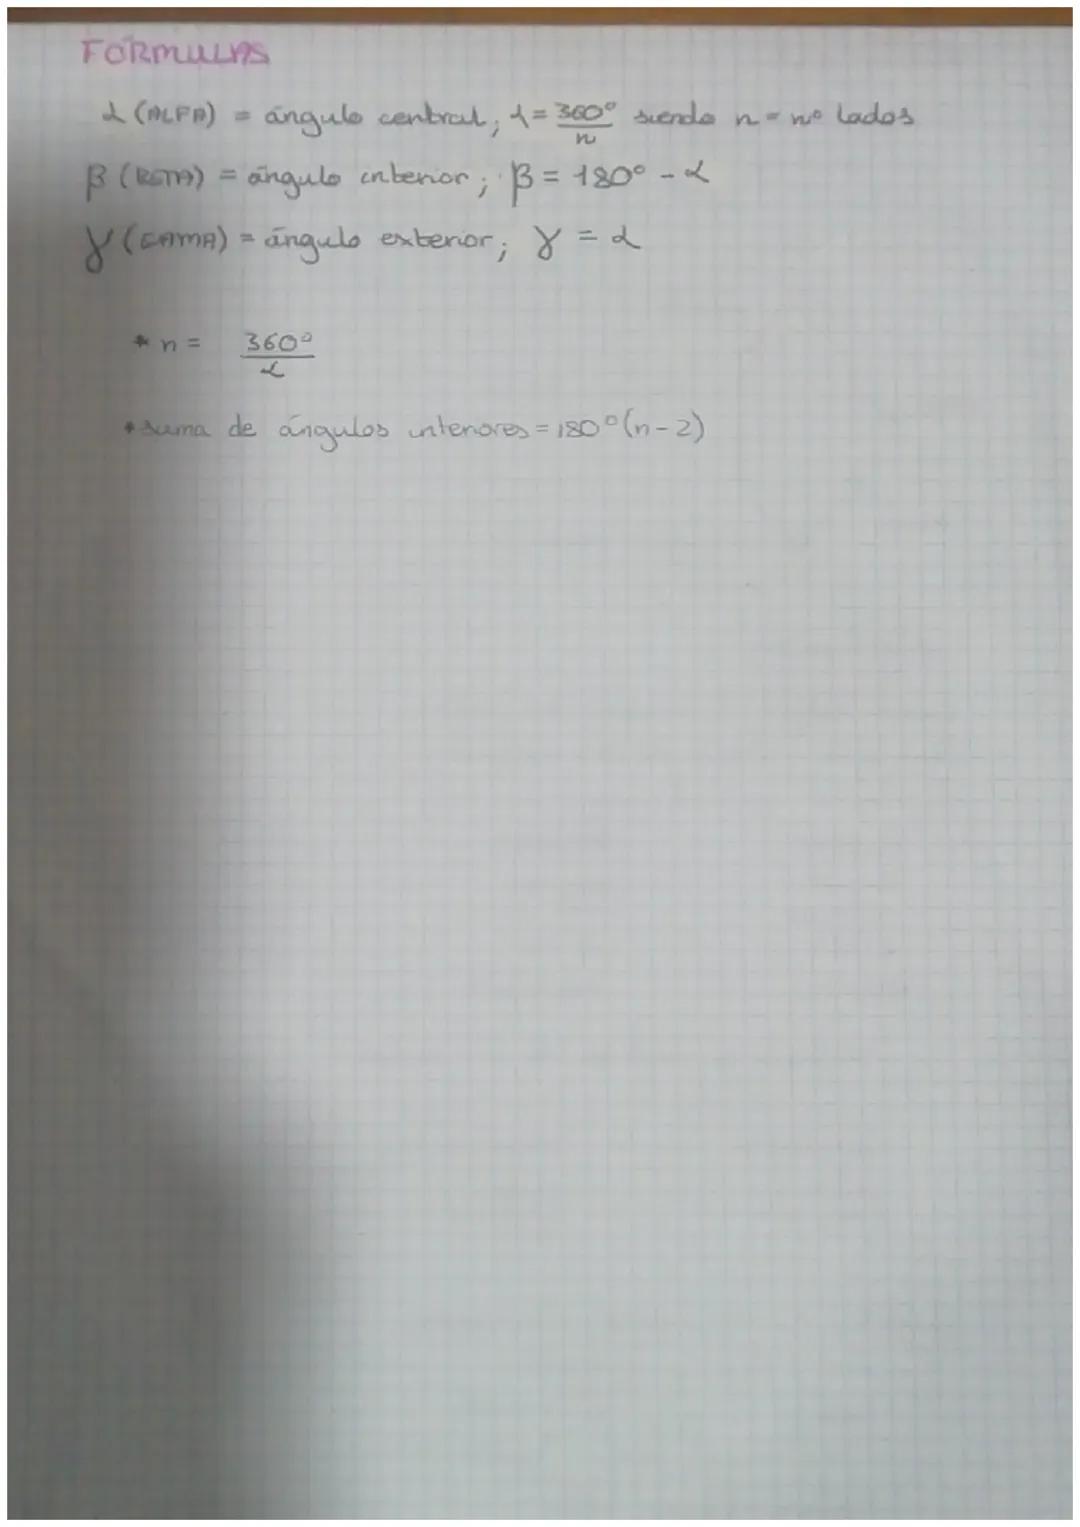 FORMULAS
α (ALFA) = ángulo central; α = 360º/n siendo n = nº lados
β (BETA) = ángulo interior; β = 180º - α
γ (GAMA) = ángulo exterior; γ = α
* n = 360º/α
* suma de ángulos interiores = 180º (n-2)